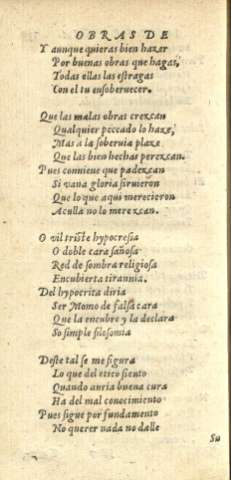 OBRAS DE
Y aunque quieras bien hazer
Por buenas obras que hagas,
Todas ellas las estragas
Con el tu ensoberuecer.
Que las malas obras crezcan
Qualquier peccado lo haze,
Mas a la soberuia plaze
Que las bien hechas perezcan.
Pues conuiene que padezcan
Si vana gloria siruieron
Que lo que aqui merecieron
Aculla no lo merezcan.
O vil triste hypocresia
O doble cara sañosa
Red de sombra religiosa
Encubierta tirannia.
Del hypocrita diria
Ser Momo de falsa cara
Que la encubre y la declara
So simple filosomia
Deste tal se me figura
Lo que del etico siento
Quando auria buena cura
Ha del mal conocimiento
Pues sigue por fundamento
No querer nada no dalle
Su